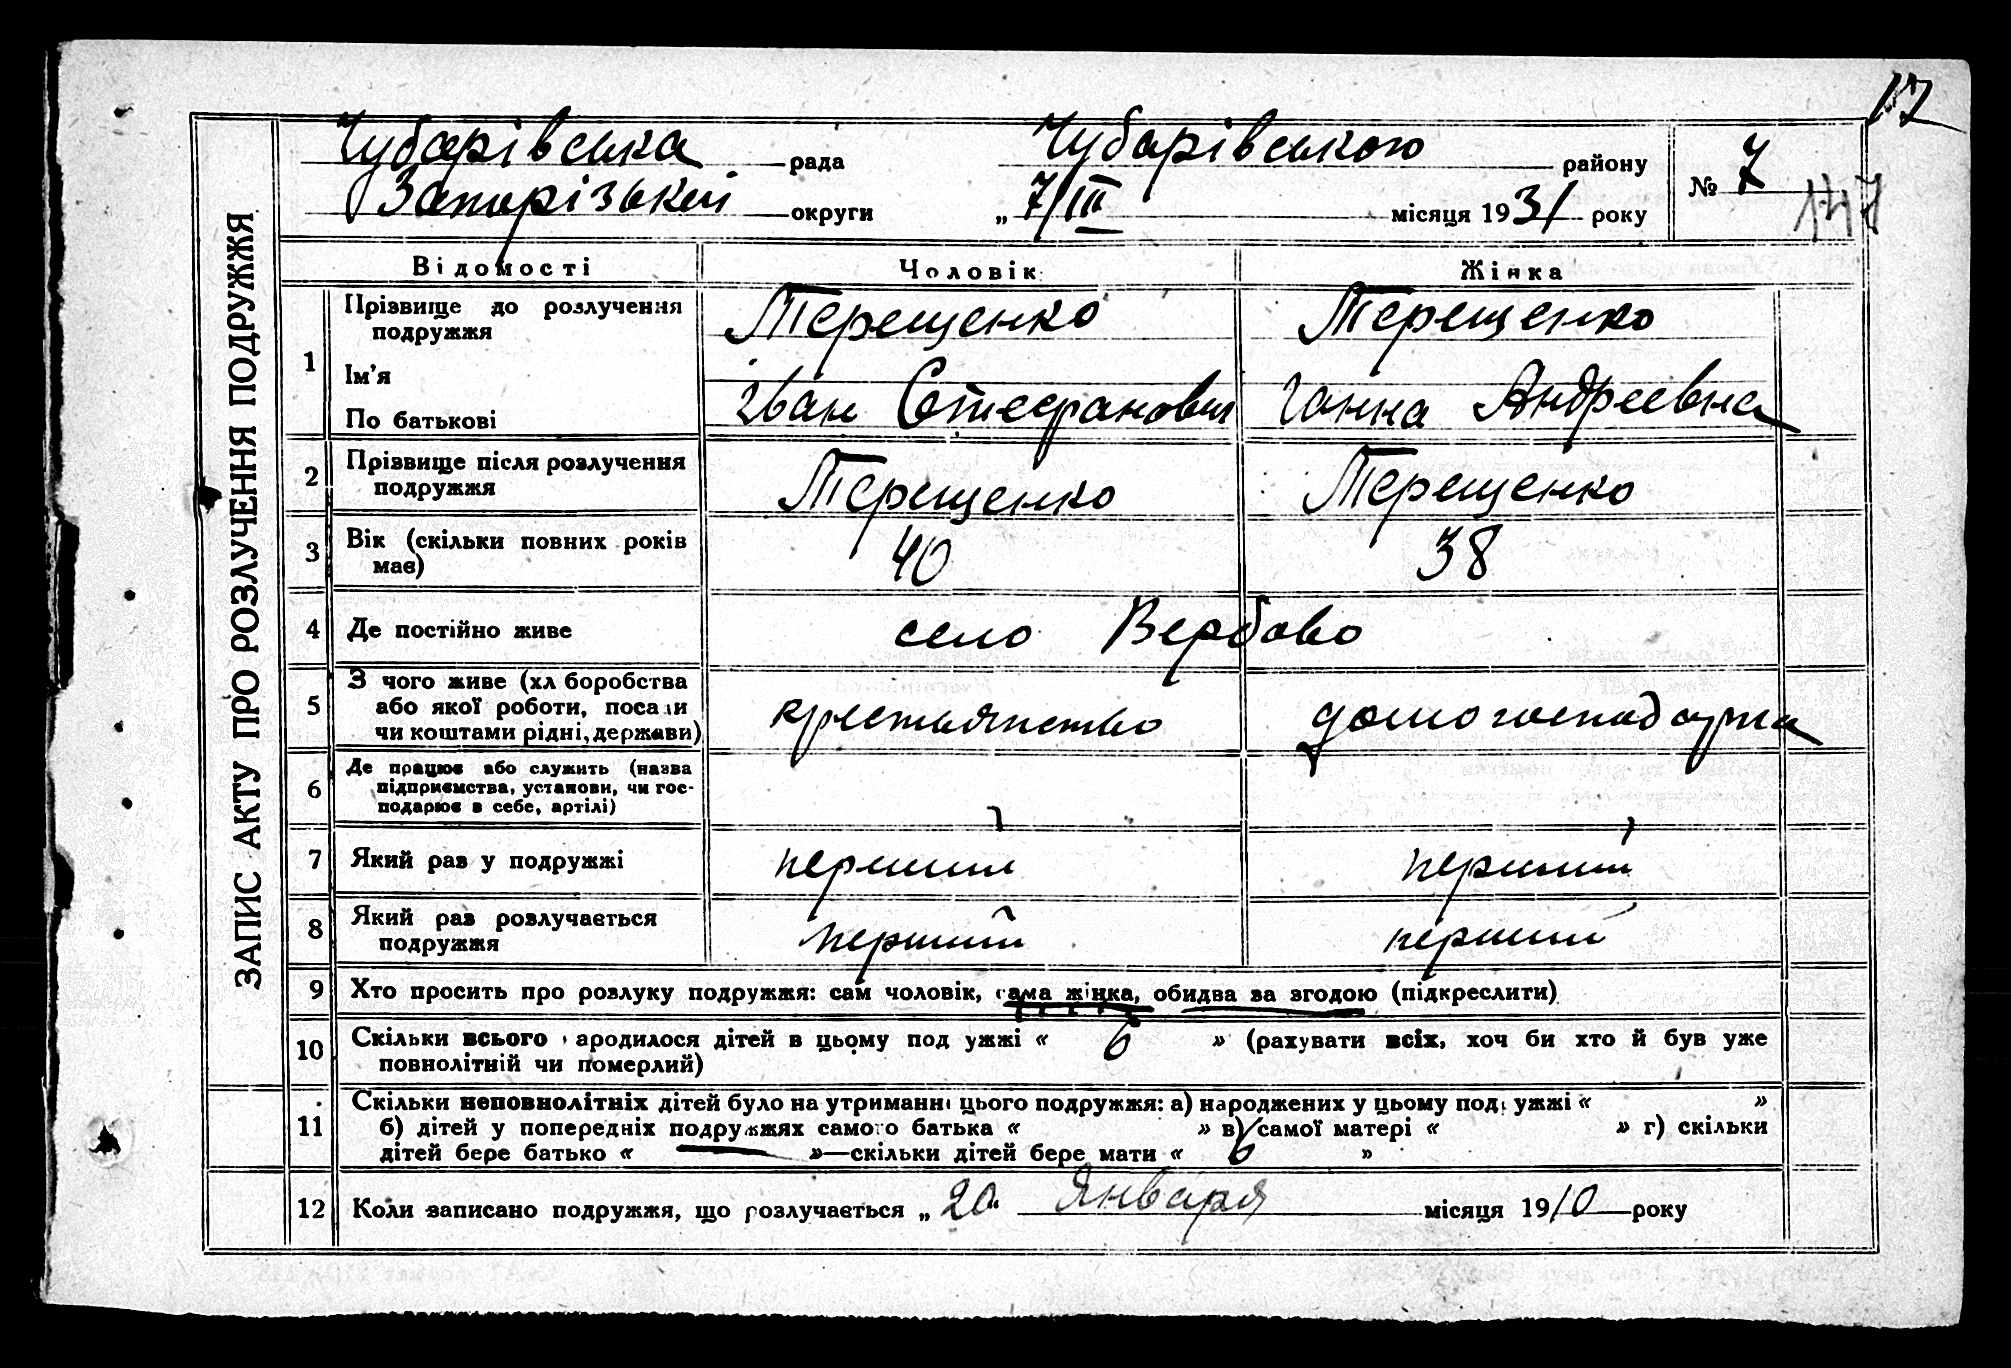 17
ЗАПИС АКТУ ПРО РОЗЛУЧЕННЯ ПОДРУЖЖЯ
Чубарівська рада Чубарівського району № 7
Запорізької округи „ 7/III місяця 1931 року 147
Відомості Чоловік Жінка
1 Прізвище до розлучення подружжя Терещенко Терещенко
Ім'я
По батькові Іван Стефанович Ганна Андреевна
2 Прізвище після розлучення
подружжя Терещенко Терещенко
3 Вік (скільки повних років
має) 40 38
4 Де постійно живе село Вербово
5 З чого живе (хл боробства
або якої роботи, посади
чи коштами рідні, держави) крестьянство домогосподарка
6 Де працює або служить (назва
підприємства, установи, чи гос-
подарює в себе, артілі)
7 Який раз у подружжі перший перший
8 Який раз розлучається
подружжя перший перший
9 Хто просить про розлуку подружжя: сам чоловік, сама жінка, обидва за згодою (підкреслити)
10 Скільки всього народилося дітей в цьому подружжі « 6 » (рахувати всіх, хоч би хто й був уже
повнолітній чи померлий)
11 Скільки неповнолітніх дітей було на утриманні цього подружжя: а) народжених у цьому подружжі « »
б) дітей у попередніх подружжях самого батька « » в) самої матері « » г) скільки
дітей бере батько « — »—скільки дітей бере мати « 6 »
12 Коли записано подружжя, що розлучається „ 20 “ Января місяця 1910 року